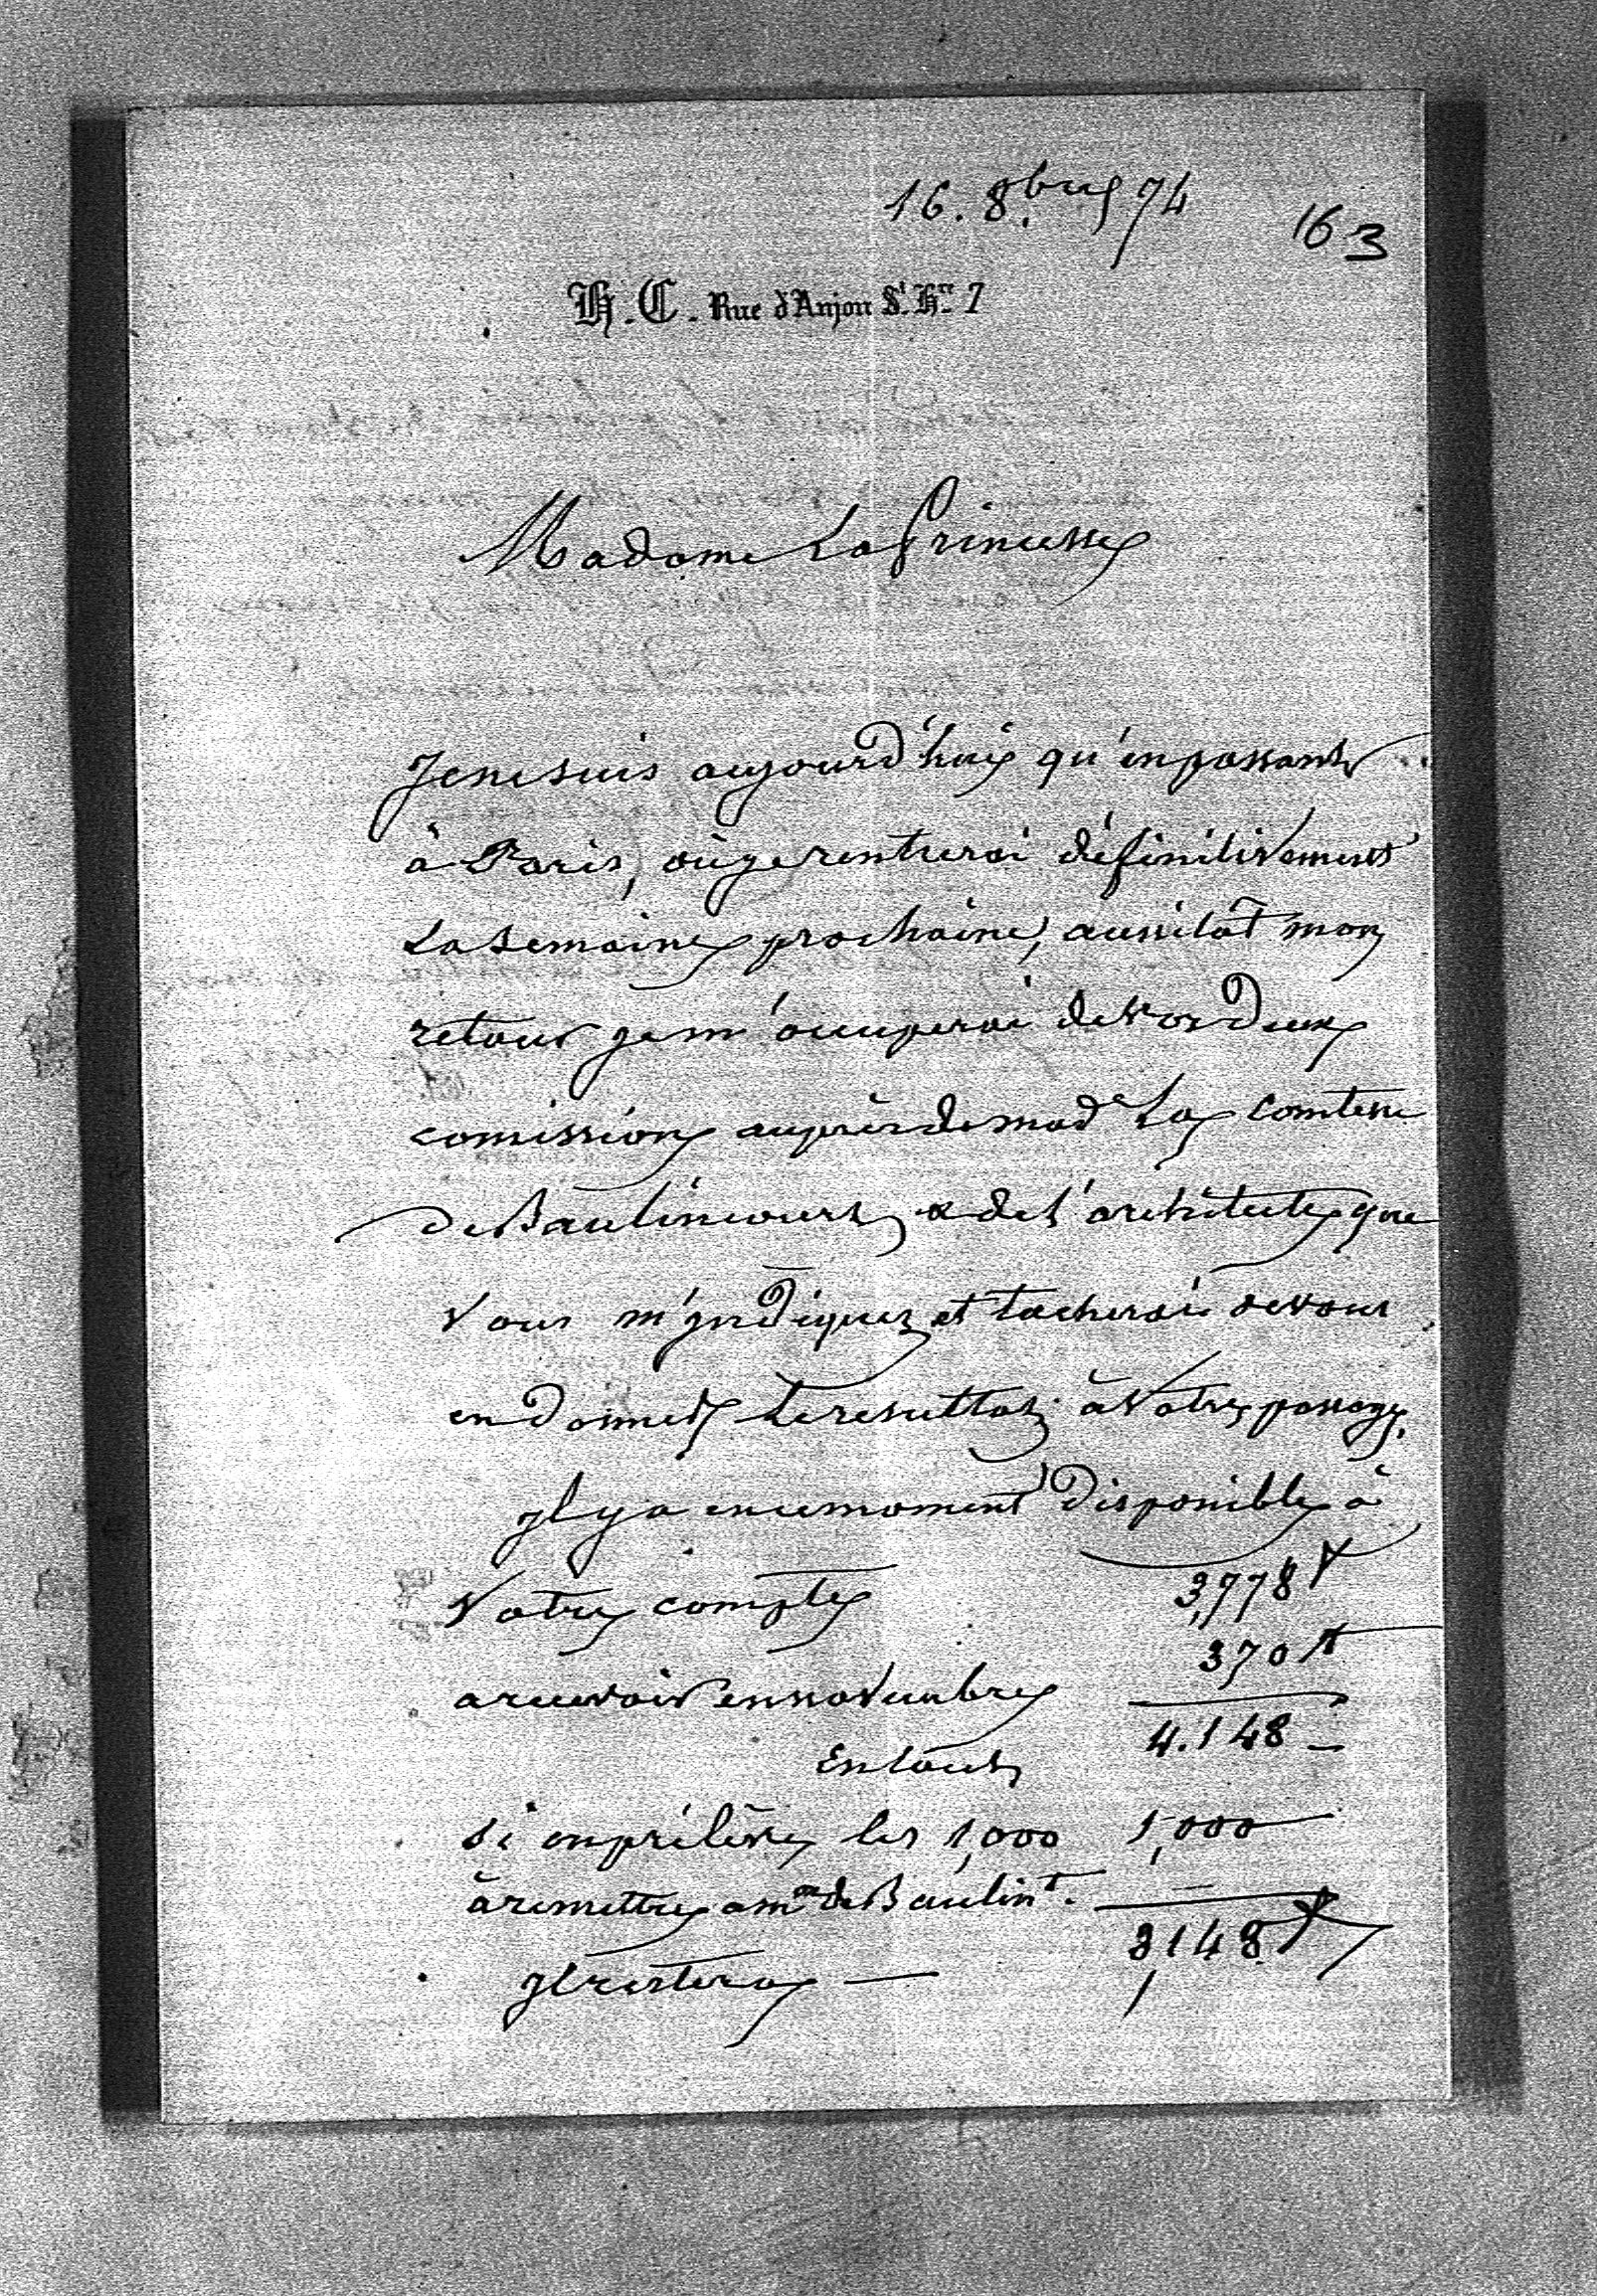 16. 8bre 74
163
H. C. Rue d'Anjou St. Hré 7
Madame La Princesse
Je ne suis aujourd'hui qu'en passant
à Paris, où je rentrerai définitivement
La semaine prochaine, aussitôt mon
retour je m'occuperai de vos deux
comissions auprès de made La comtesse
de Baulincourt & de l'architecte que
Vous m'yndiquez et tacherai de vous
en donner Le resultat à Votre passage.
yl y a en ce moment disponible à
Votre compte 3,778 f
a recevoir en novembre 370 f
En tout 4.148 –
si on prélève les 1,000 1,000
à remettre a me de Baulint.
yl restera — 3148 f